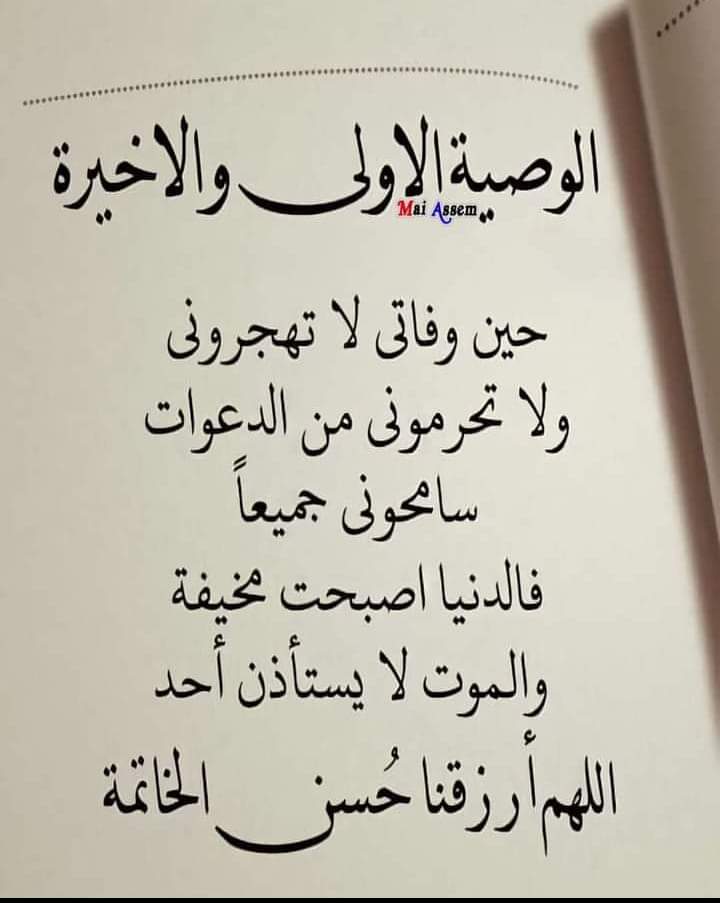 الوصية الاولى والاخيرة
Mai Assem
حين وفاتى لا تهجرونى
ولا تحرمونى من الدعوات
سامحونى جميعاً
فالدنيا اصبحت مخيفة
والموت لا يستأذن أحد
اللهم أرزقنا حُسن الخاتمة